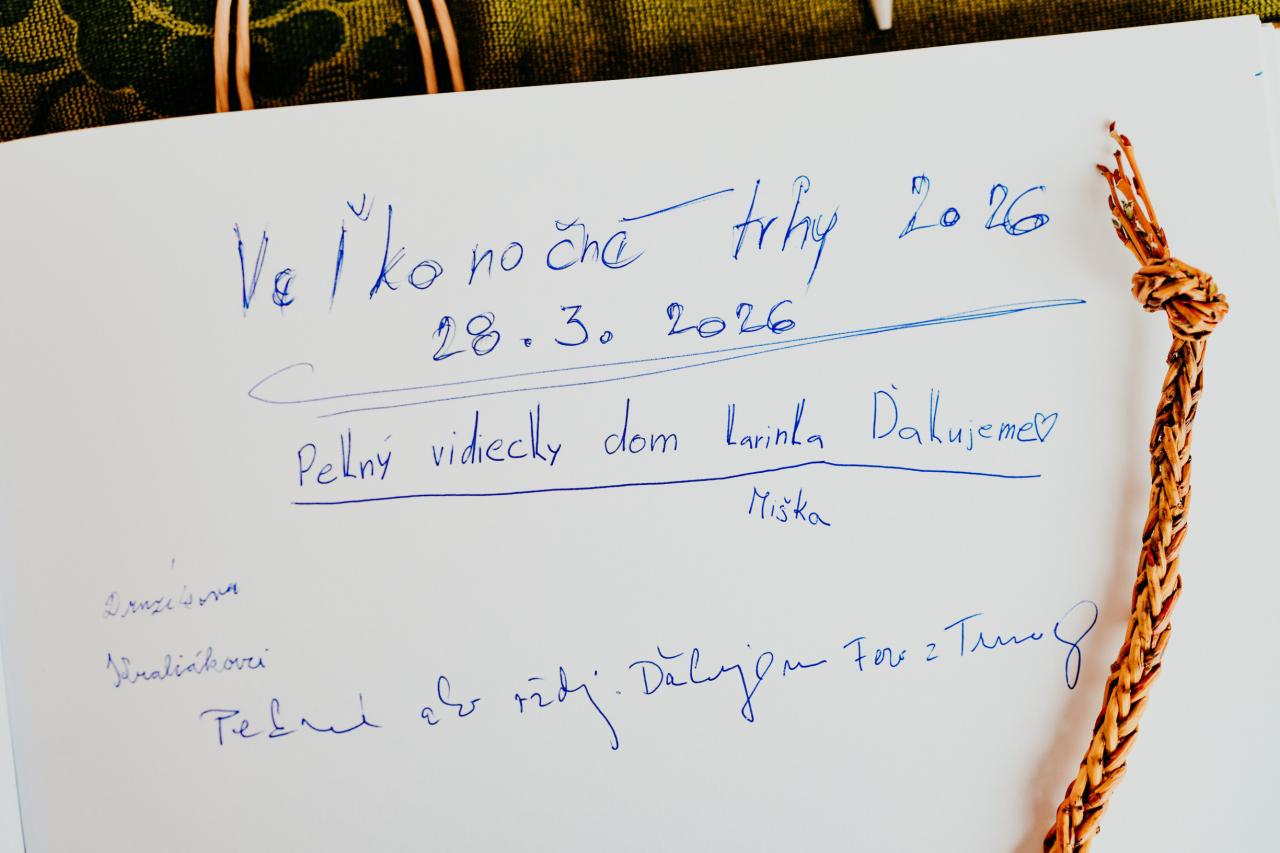 Veľkonočné trhy 2026
28. 3. 2026
Pekný vidiecky dom karinka Ďakujeme♡
Miška
Kraliákovci
Pekné ako vždy. Ďakujem Fero z Trnavy